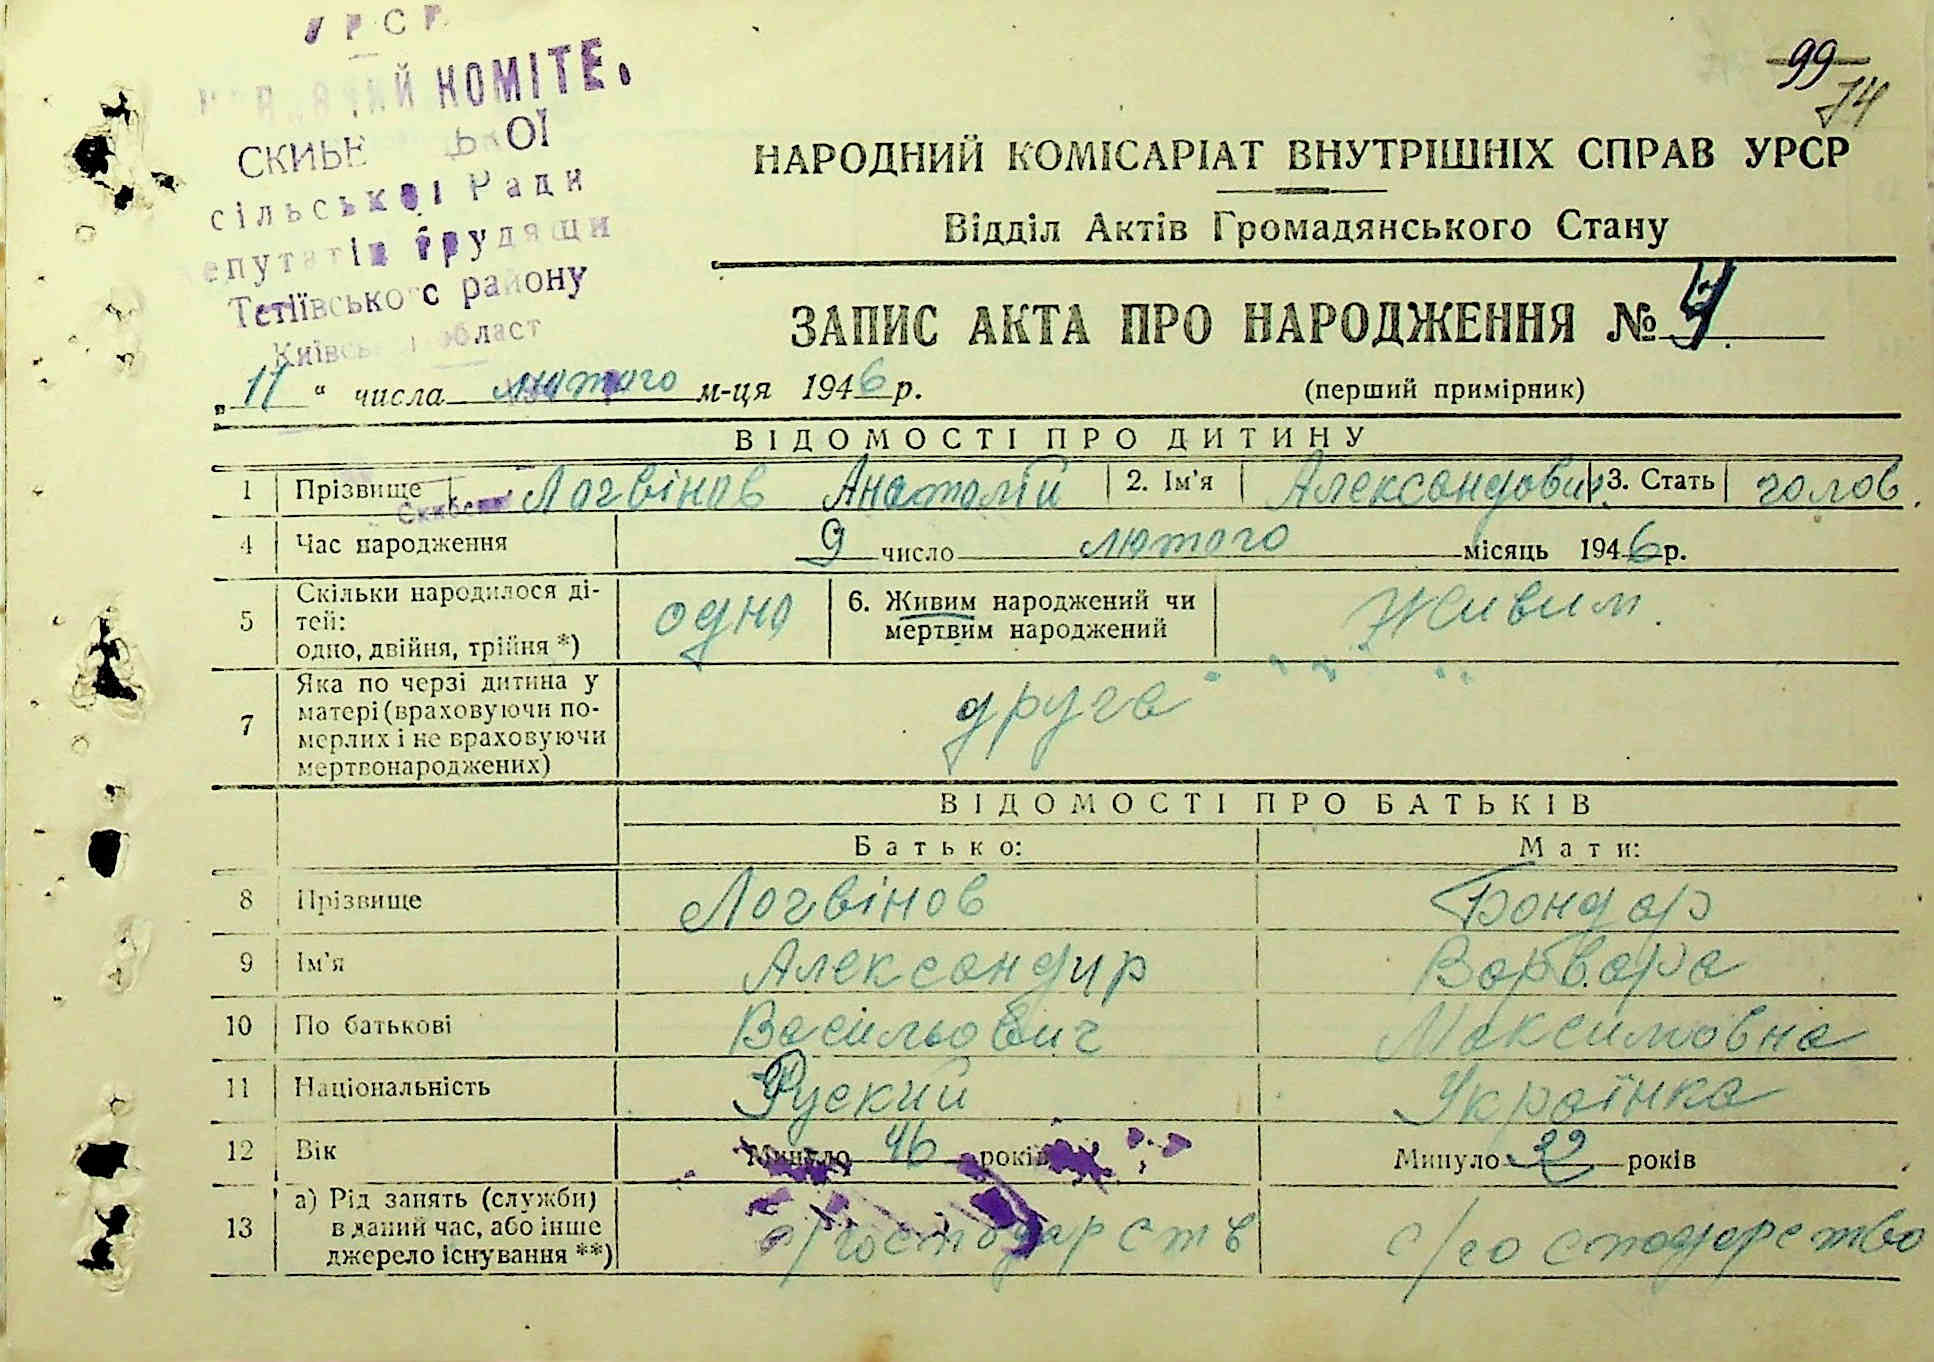 УРСР
КОМІТЕ
сільської Ради
Тетіївського району
99
74
НАРОДНИЙ КОМІСАРІАТ ВНУТРІШНІХ СПРАВ УРСР
Відділ Актів Громадянського Стану
ЗАПИС АКТА ПРО НАРОДЖЕННЯ №
„11“ числа лютого м-ця 1946 р.
(перший примірник)
ВІДОМОСТІ ПРО ДИТИНУ
1 Прізвище Логвінов Анатолій 2. Ім'я Александович 3. Стать голов.
4 Час народження 9 число лютого місяць 1946 р.
5 Скільки народилося ді-
тей:
одно, двійня, трійня *) одно 6. Живим народжений чи
мертвим народжений Живим.
7 Яка по черзі дитина у
матері (враховуючи по-
мерлих і не враховуючи
мертвонароджених) друга
ВІДОМОСТІ ПРО БАТЬКІВ
Батько: Мати:
8 Прізвище Логвінов Бондар
9 Ім'я Александир Варвара
10 По батькові Васильович Максимовна
11 Національність Руский Українка
12 Вік Минуло 46 років Минуло 32 років
13 а) Рід занять (служби)
в даний час, або інше
джерело існування **) с/господарств с/господарство